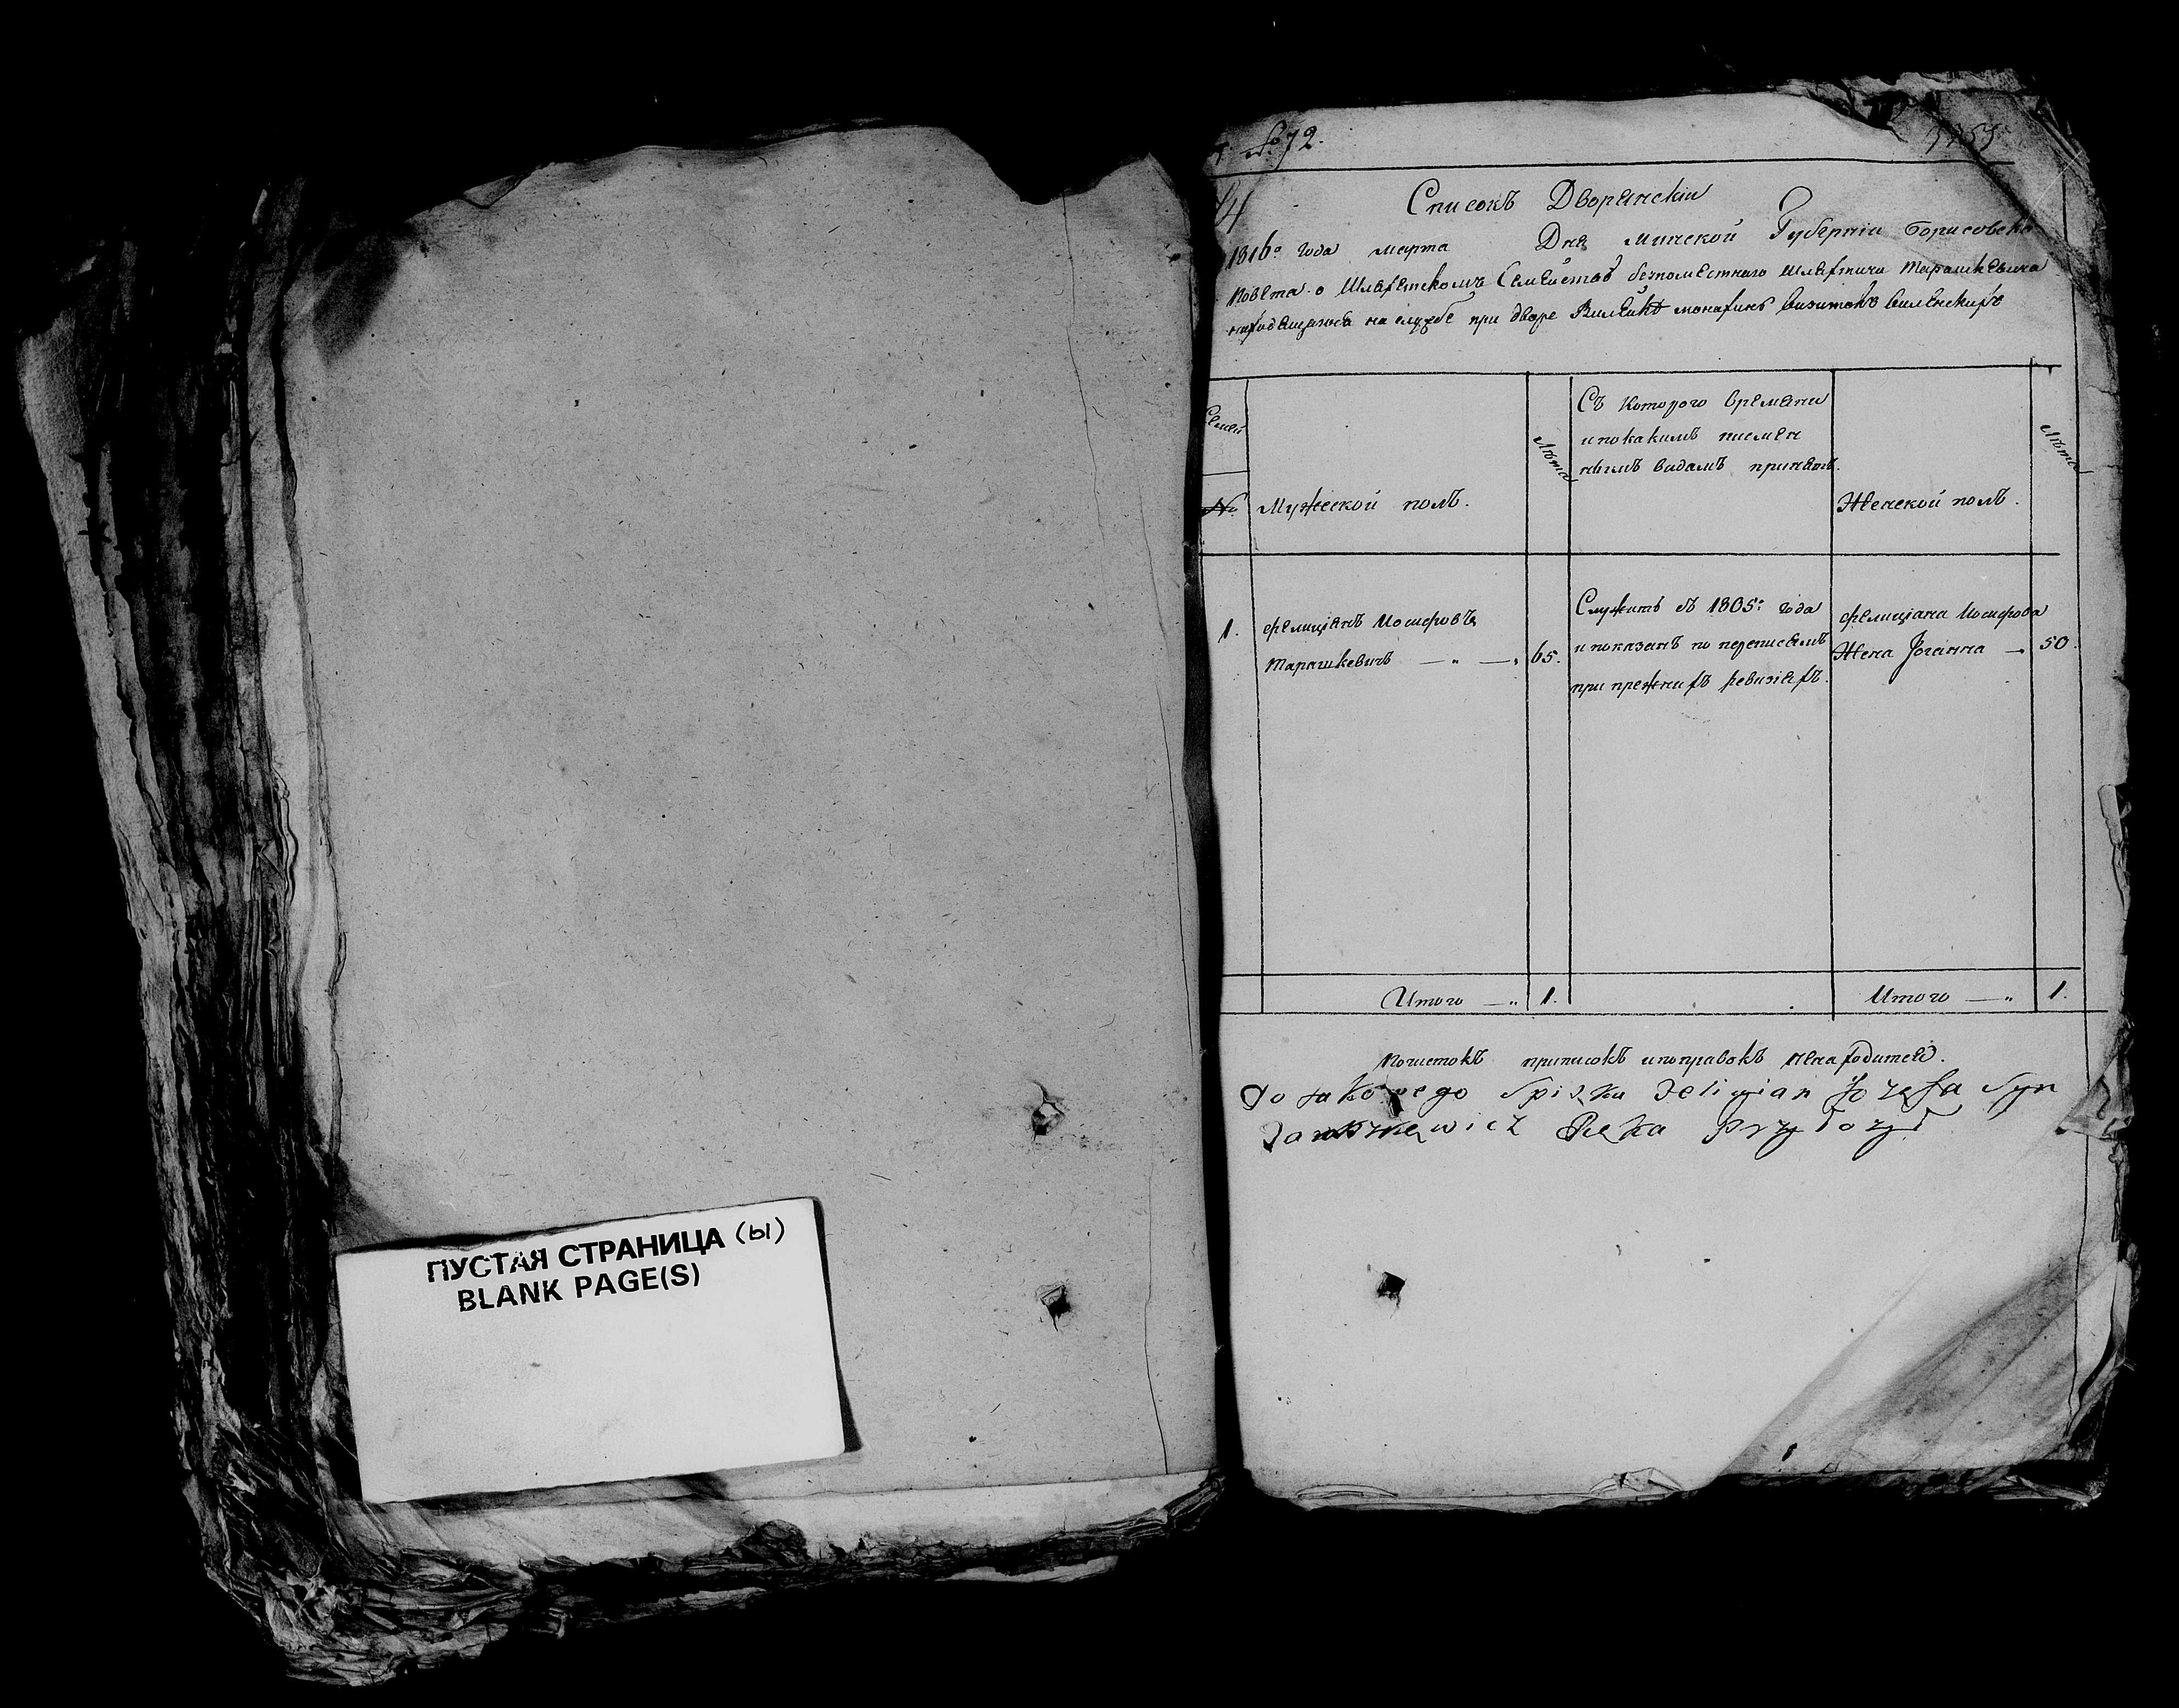 ПУСТАЯ СТРАНИЦА (ы)
BLANK PAGE(S)
№ 72.
Списокъ Дворянскій
1816го года марта Дня Минской Губерніи Борисовска
Повета о Шляхетскомъ Семействѣ безпоместнаго Шляхтича Тарашкевича
находящагося на службѣ при дворе Вилейкѣ монахинь визитокъ виленскихъ
Семей
№
Мужеской полъ.
Лѣта
Съ Которого времяни
и по какимъ писмен
нымъ видамъ принятъ.
Женской полъ.
Лѣта
1.
Фелиціянъ Иосифовъ
Тарашкевичъ — „ — „ 65.
Служитъ съ 1805: года
и показанъ по переписямъ
при прежнихъ ревизіяхъ.
Фелиціана Иосифова
Жена Іоганна — „ 50.
Итого — „ 1.
Итого — „ 1.
Почистокъ приписокъ и поправокъ ненаходится.
Do takowego Spisku Felicyian Jozefa Syn
Taraszkiewicz Ręką Przyłozył